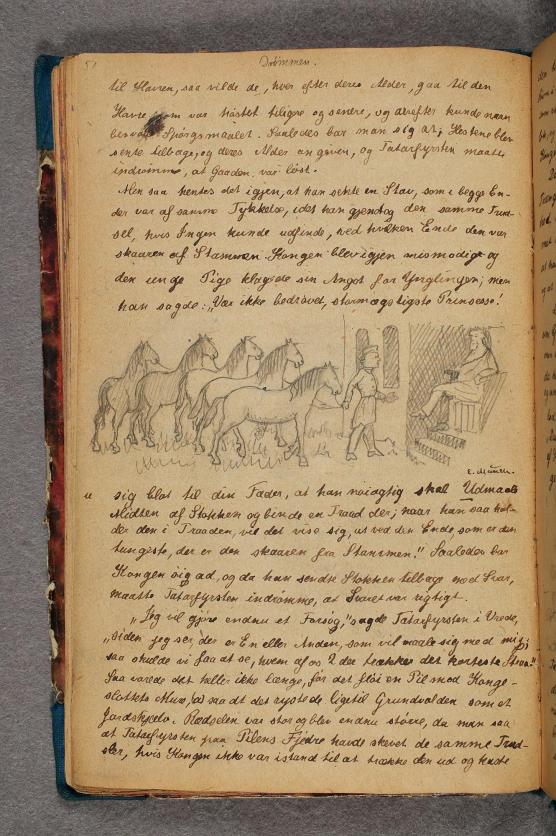 51
Drømmen.
til Havren, saa vilde de, hver efter deres Alder, gaa til den
Havre som var høstet tiligre og senere, og derefter kunde man
besvare Spørgsmaalet. Saaledes bar man sig at; Hestene blev
sente tilbage, og deres Alder angiven, og Tatarfyrsten maatte
indrømme, at Gaaden var løst.
Men saa hentes det igjen, at han sente en Stav, som i begge En-
der var af samme Tykkelse, idet han gjentog den samme Trud-
sel, hvis Ingen kunde udfinde, ved hvilken Ende den var
skaaren af Stammen. Kongen blev igjen mismodig og
den unge Pige klagede sin Angst for Ynglingen; men
han sagde: „Vær ikke bedrøvet, stormægtigste Prinsesse!
E. Munch.
sig blot til din Fader, at han nøiagtig skal Udmaale
Midten af Stokken og binde en Traad der; naar han saa hol-
der den i Traaden, vil det vise sig, at ved den Ende, som er den
tungeste, der er den skaaren fra Stammen!" Saaledes bar
Kongen sig ad, og da han sendte Stokken tilbage med Svar,
maatte Tatarfyrsten indrømme, at Svaret var rigtigt.
„Jeg vil gjøre endnu et Forsøg," sagde Tatarfyrsten i Vrede,
„siden jeg ser, der er En eller Anden, som vil maale sig med mig;
saa skulde vi faa at se, hvem af os 2 der trækker det korteste Straa."
Saa varede det heller ikke længe, før det fløi en Pil mod Konge-
slottets Mur, saa at det rystede ligetil Grundvolden som et
Jordskjælv. Rædselen var stor og blev endnu større, da man saa
at Tatarfyrsten paa Pilens Fjedre havde skrevet de samme Trud-
sler, hvis Kongen ikke var istand til at trække den ud og sende